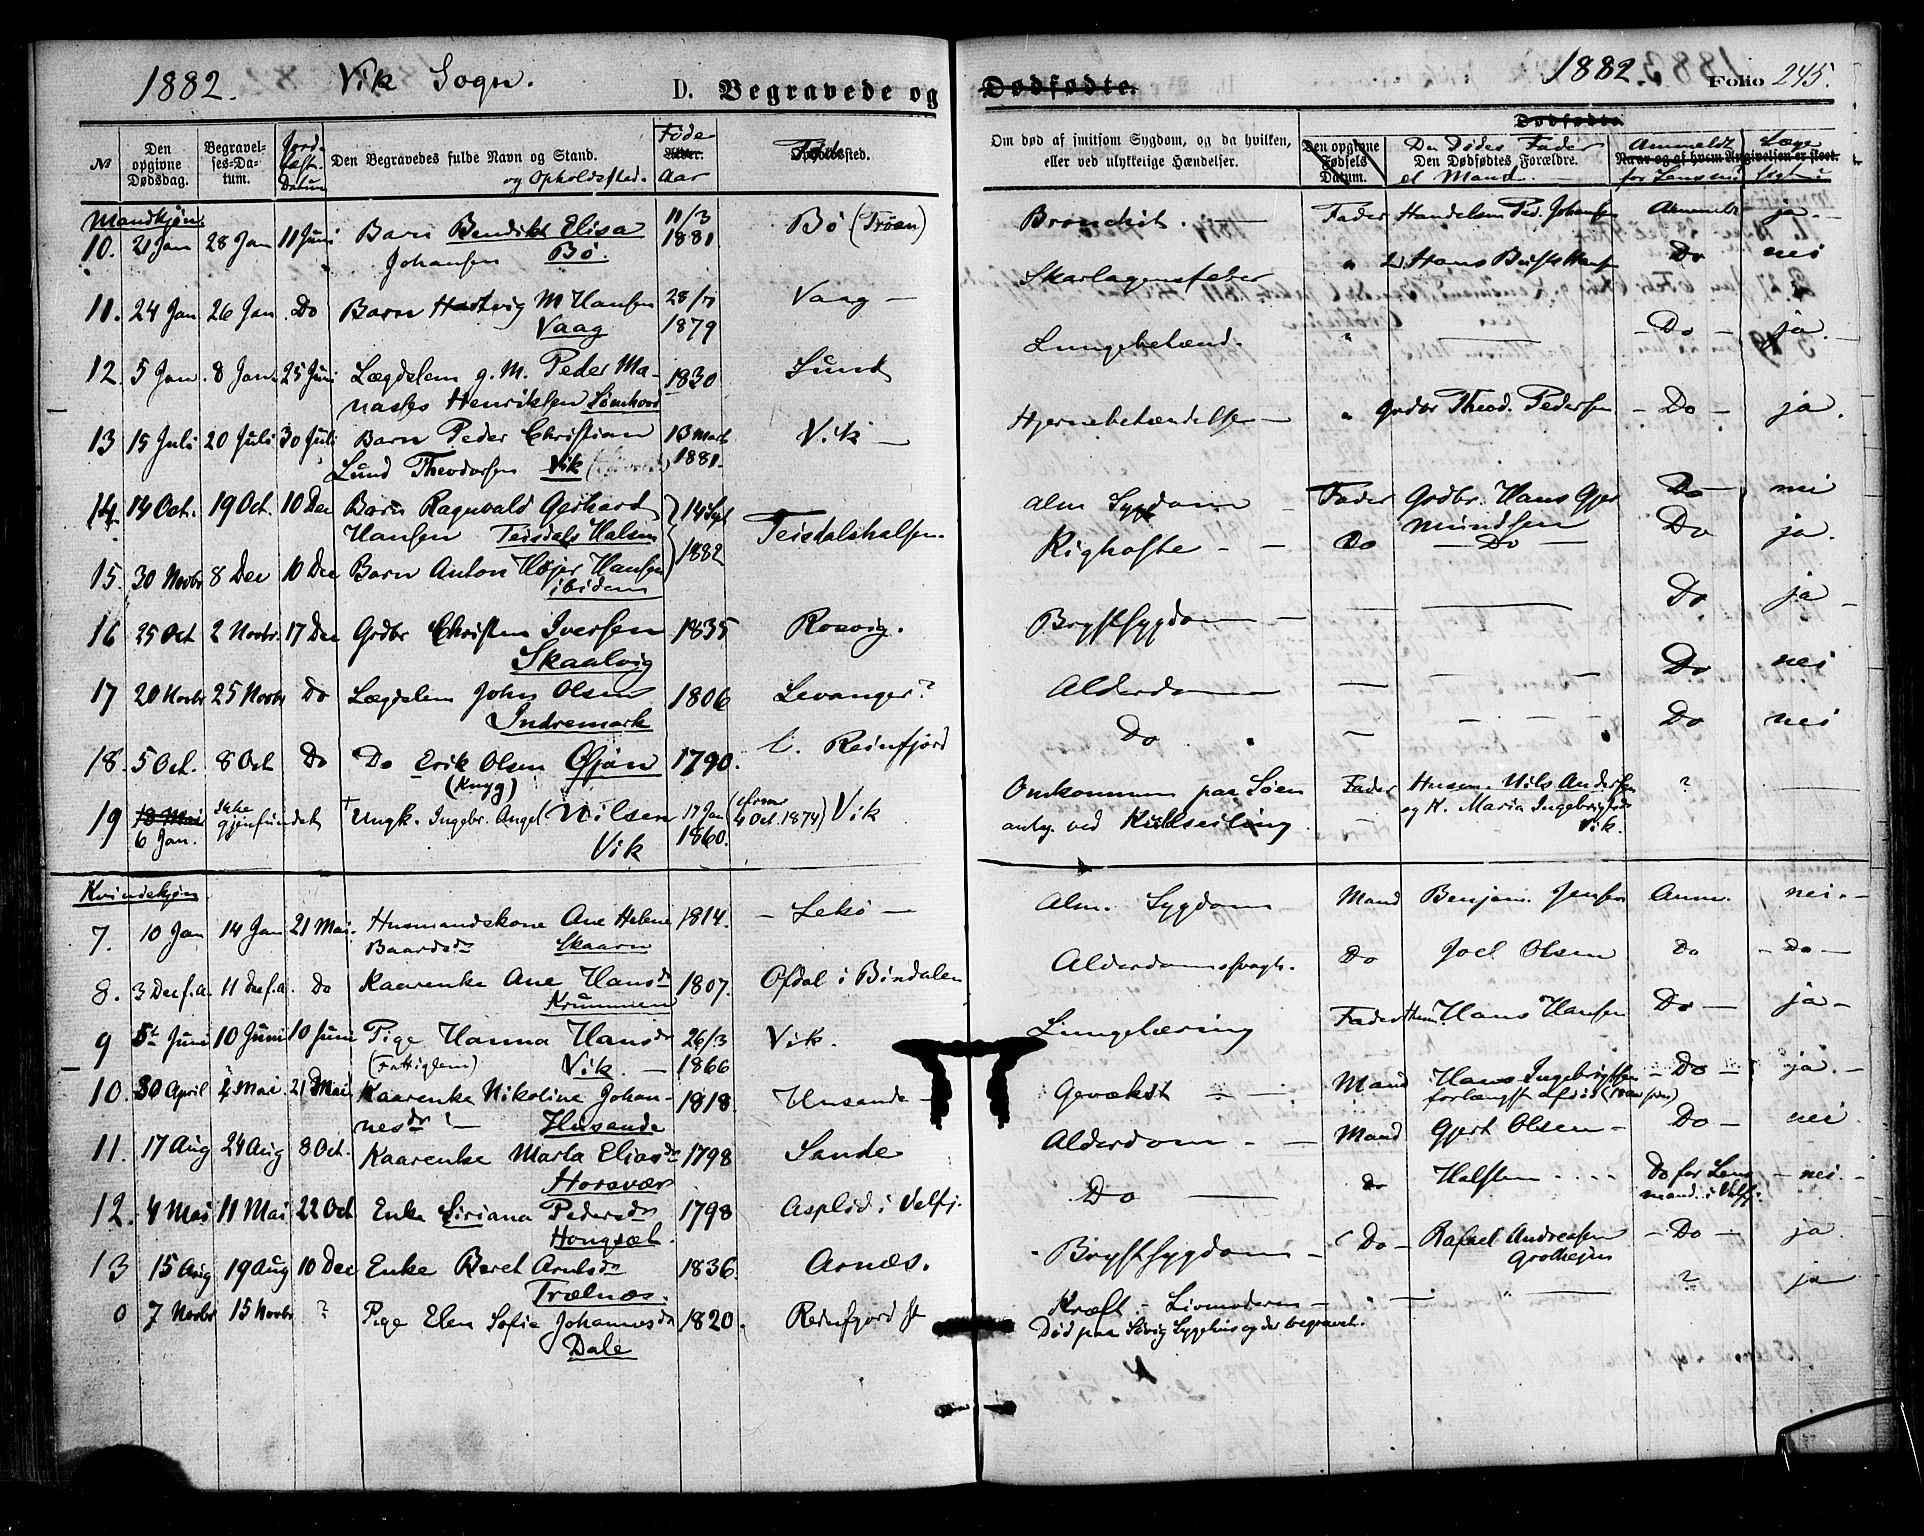 1882. Vik Sogn. D. Begravede og Dødfødte. 1882. Folio 245.
№ Den opgivne Dødsdag. Begravelses-Datum. Jordfæst. Datum Den Begravedes fulde Navn og Stand. og Opholdssted. Føde Alder. Aar Føde Opholdssted. Om død af smitsom Sygdom, og da hvilken, eller ved ulykkelige Hændelser. Den opgivne Fødsels Datum. Dødfødte Den Dødes Fader el Mand. Den Dødfødtes Forældre. Anmeldt for Lensm. Naar og af hvem Angivelsen er skeet. Læge søgt?
Mandkjøn
10. 21 Jan 28 Jan 11 Juni Barn Bendikt Elisa 11/3 Bø (Trøen) Bronchit. Fader Handelsm Ped. Johansen Anmeldt ja.
Johansen Bø. 1881
11. 24 Jan 26 Jan Do Barn Hartvig M Hansen 28/7 Vaag Skarlagensfeber " Hans Hansen Do nei
Vaag 1879
12. 5 Jan. 8 Jan. 25 Juni Lægdslem g. M. Peder Ma- 1830 Lund Lungebetænd. " Do ja.
nasses Henriksen Sømhovd
13 15 Juli 20 Juli 30 Juli Barn Peder Christian 13 Marts Vik Hjernebetændelse " Grdbr Theod. Pedersen Do ja.
Lund Theodorsen Vik 1881.
14. 14 Oct. 19 Oct. 10 Dec Barn Ragnvald Gerhard 14 Sept Teisdalshalsen. alm Sygdom Fader Grdbr. Hans Gjer Do nei
Hansen Teisdals Halsen 1882 mundsen
15. 30 Novbr 8 Dec 10 Dec Barn Anton Højer Hansen Kighoste Do Do Do ja.
ibidem
16 25 Oct 2 Novbr. 17 Dec Grdbr Christen Iversen 1835 Roevig. Brystsygdom Do ja
Skaalvig
17 20 Novbr 25 Novbr Do Lægdslem John Olsen 1806 Levanger? Alderdom Do nei
Indremark
18. 5 Oct. 8 Oct Do Do Erik Olsen Gjøn 1790. l. Reinfjord Do Do nei
(Knyg)
19 18 Mai Ikke gjenfundet † Ungk. Ingebr. Angel Nilsen 17 Jan Vik Omkommen paa Søen Fader Husm. Nils Andersen ?
6 Jan. Vik 1860. 4 Oct. 1874) antag. ved Kuldseiling og H. Maria Ingebrigtsdr Vik.
Kvindekjøn
7. 10 Jan 14 Jan 21 Mai. Husmandskone Ane Helene 1814. Lekø Alm. Sygdom Mand Benjam. Jensen Anm. nei.
Baardsdr Skaarn
8. 3 Dec f.a. 11 Dec f.a. Do Kaarenke Ane Hansdr 1807. Ofdal i Bindalen Alderdomssvagh. Do Joel Olsen Do Do
Krummen
9 5te Juni 10 Juni 10 Juni Pige Hanna Hansdr 26/3 Vik. Lungetæring Fader Husm. Hans Hansen Do ja
(Fattiglem) Vik. 1866
10. 30 April 4 Mai 21 Mai Kaarenke Nikoline Johan- 1818. Husande Gevækst Mand Hans Ingebrigtsen Do ja.
nesdr Husande forlængst afdød
11. 17 Aug 24 Aug 8 Oct. Kaarenke Marta Eliasdr 1798 Sande Alderdom Mand Gjert Olsen Do nei
Horsvær
12. 4 Mai 11 Mai 22 Oct Enke Siriana Pedersdr 1798 Asplid i Velfj. Do do Halsten .... Do for Lensmand. i Velfj. nei.
Hongsæt.
13 15 Aug 19 Aug 10 Dec Enke Beret Arntsdr 1836. Arnæs. Brystsygdom Do Rafael Andreasen Do ja
Trælnæs. Grothejm
0 7 Novbr 15 Novbr ? Pige Elen Sofie Johannesdr 1820. Reinfjord Kræft. Livmoderen " ? ja
Dale Død paa Søvig Sygehus og der begravet.